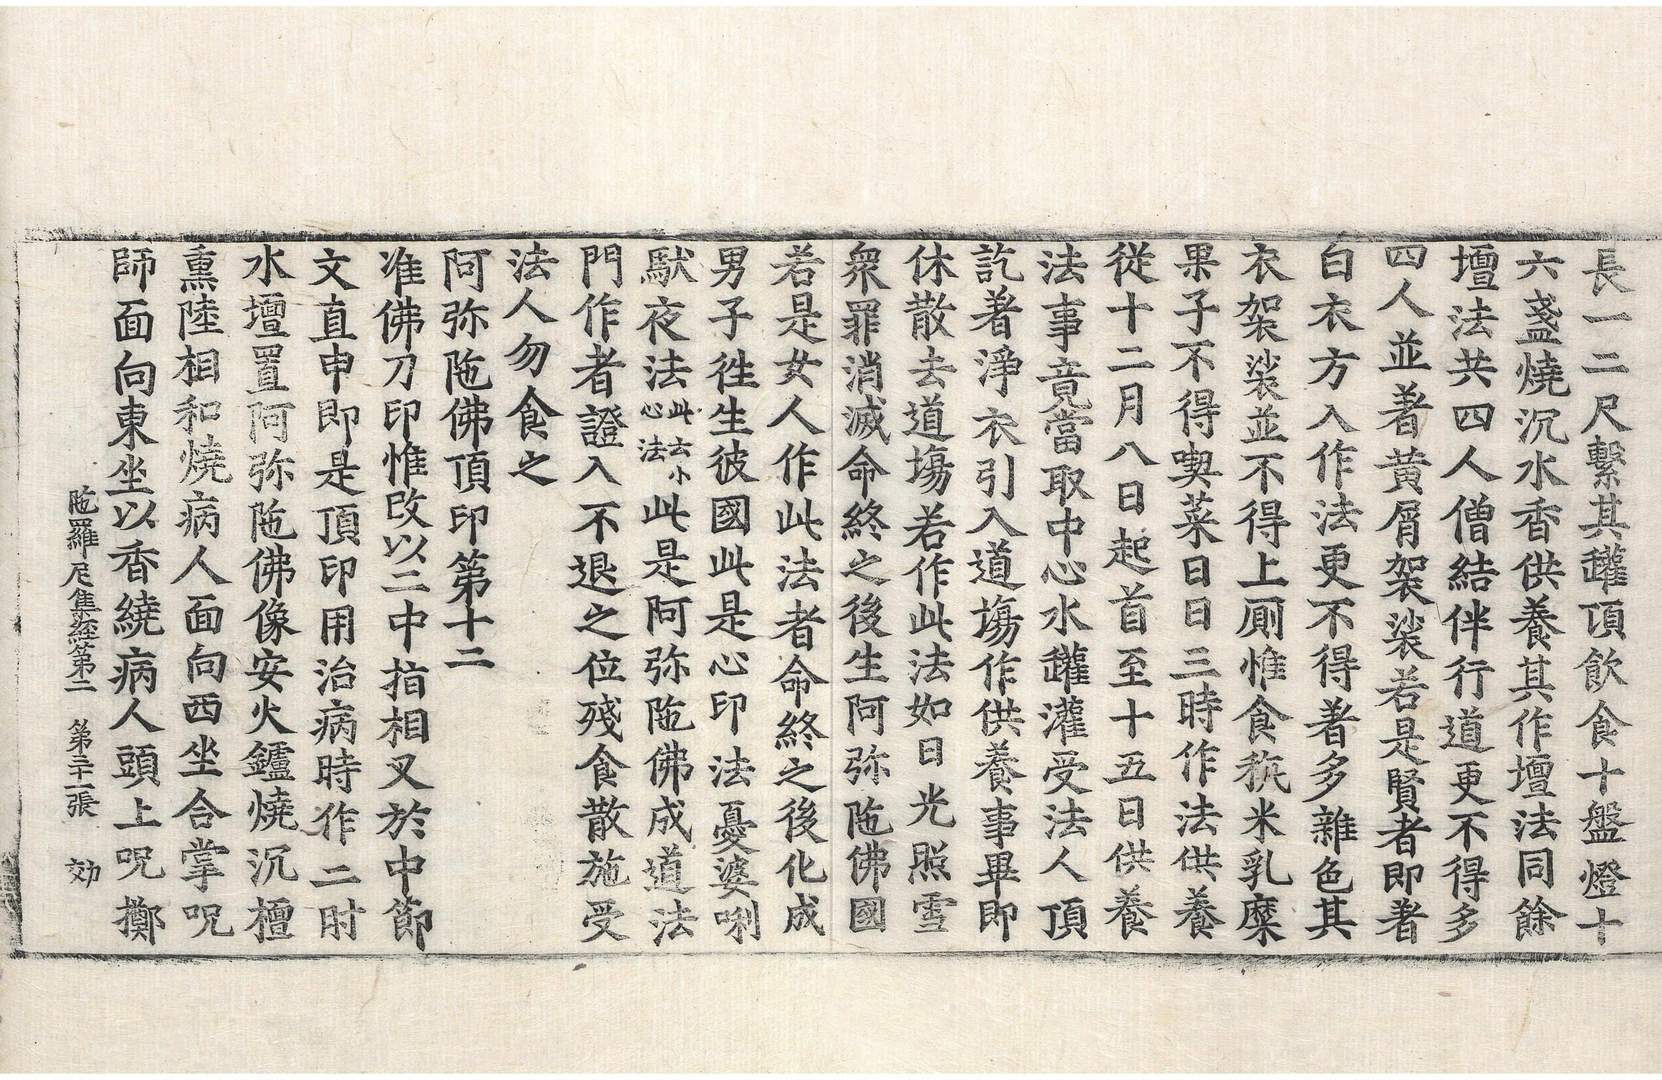 長一二尺繫其罐頂飲食十盤燈十
六盞燒沉水香供養其作壇法同餘
壇法共四人僧結伴行道更不得多
四人並著黃屑袈裟若是賢者即著
白衣方入作法更不得著多雜色其
衣袈裟並不得上厠惟食秔米乳糜
果子不得喫菜日日三時作法供養
從十二月八日起首至十五日供養
法事竟當取中心水罐灌受法人頂
訖著淨衣引入道塲作供養事畢即
休散去道塲若作此法如日光照雪
衆罪消滅命終之後生阿弥陁佛國
若是女人作此法者命終之後化成
男子徃生彼國此是心印法憂婆唎
馱夜法此云小心法此是阿弥陁佛成道法
門作者證入不退之位殘食散施受
法人勿食之
阿弥陁佛頂印第十二
准佛刀印惟改以二中指相叉於中節
文直申即是頂印用治病時作二肘
水壇置阿弥陁佛像安火鑪燒沉檀
熏陸相和燒病人面向西坐合掌呪
師面向東坐以香繞病人頭上呪擲
陁羅尼集經第二 第二十二張 効